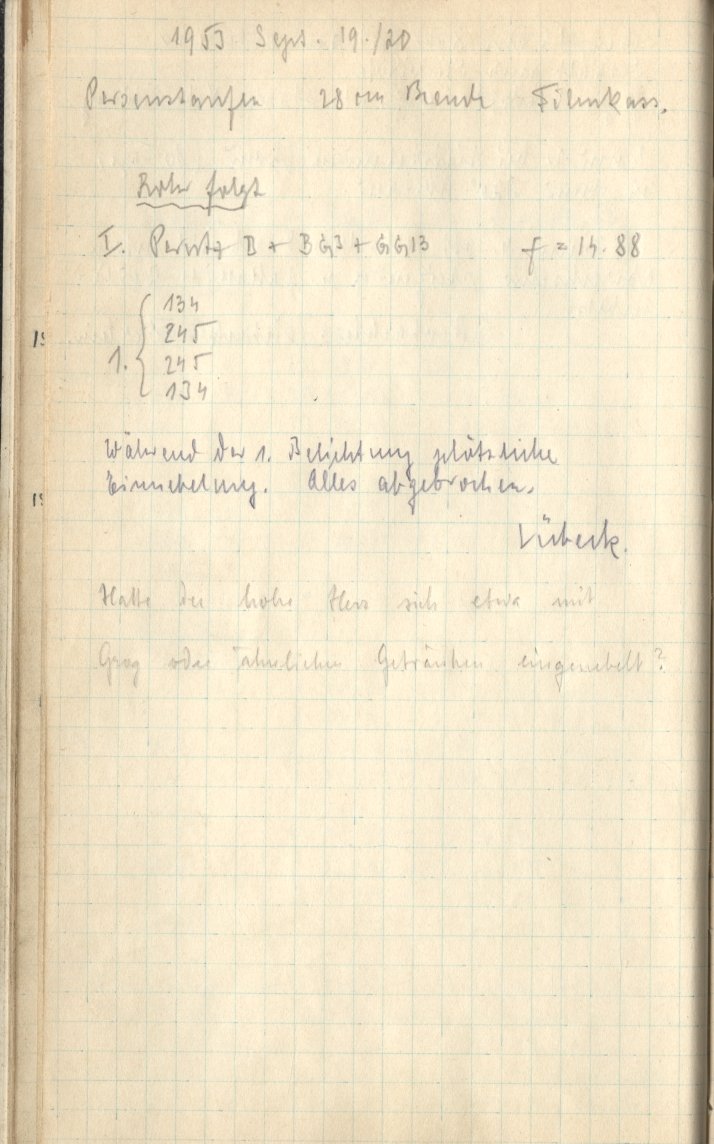 1953 Sept. 19./20
Perseushaufen 28 cm Blende Filmkass.
Rohr folgt
I. Perutz B + BG3 + GG13 f = 14.88
1. { 134
245
245
134
Während der 1. Belichtung plötzliche
Einnebelung. Alles abgebrochen.
Lübeck.
Hatte der hohe Herr sich etwa mit
Grog oder ähnlichen Getränken eingenebelt?